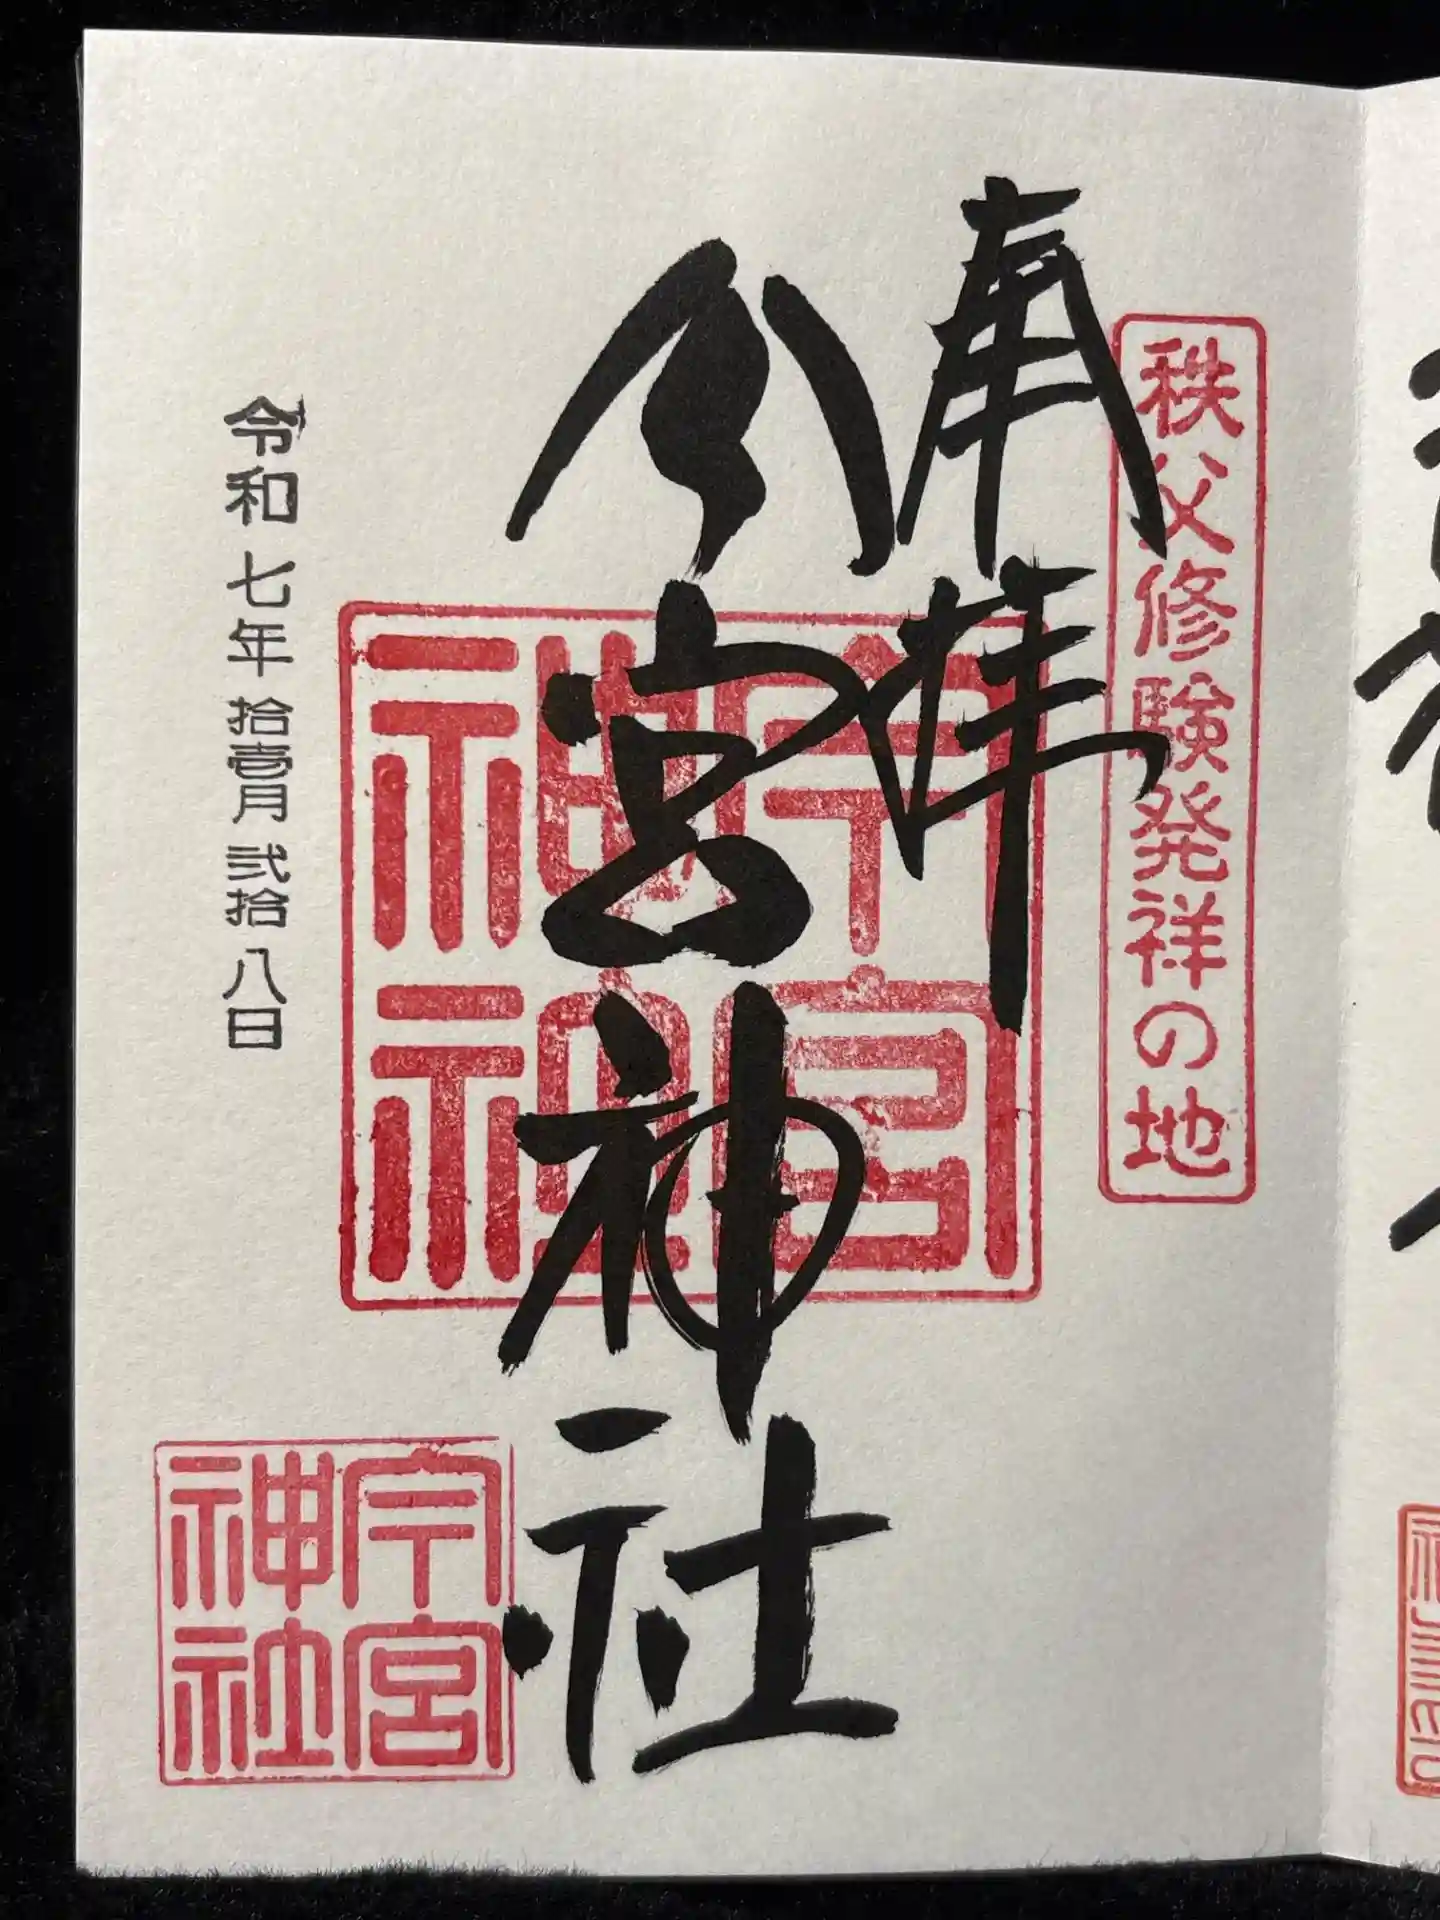 秩父修験発祥の地
奉拝
今宮神社
令和七年拾壹月弐拾八日
今宮
神社
今宮
神社